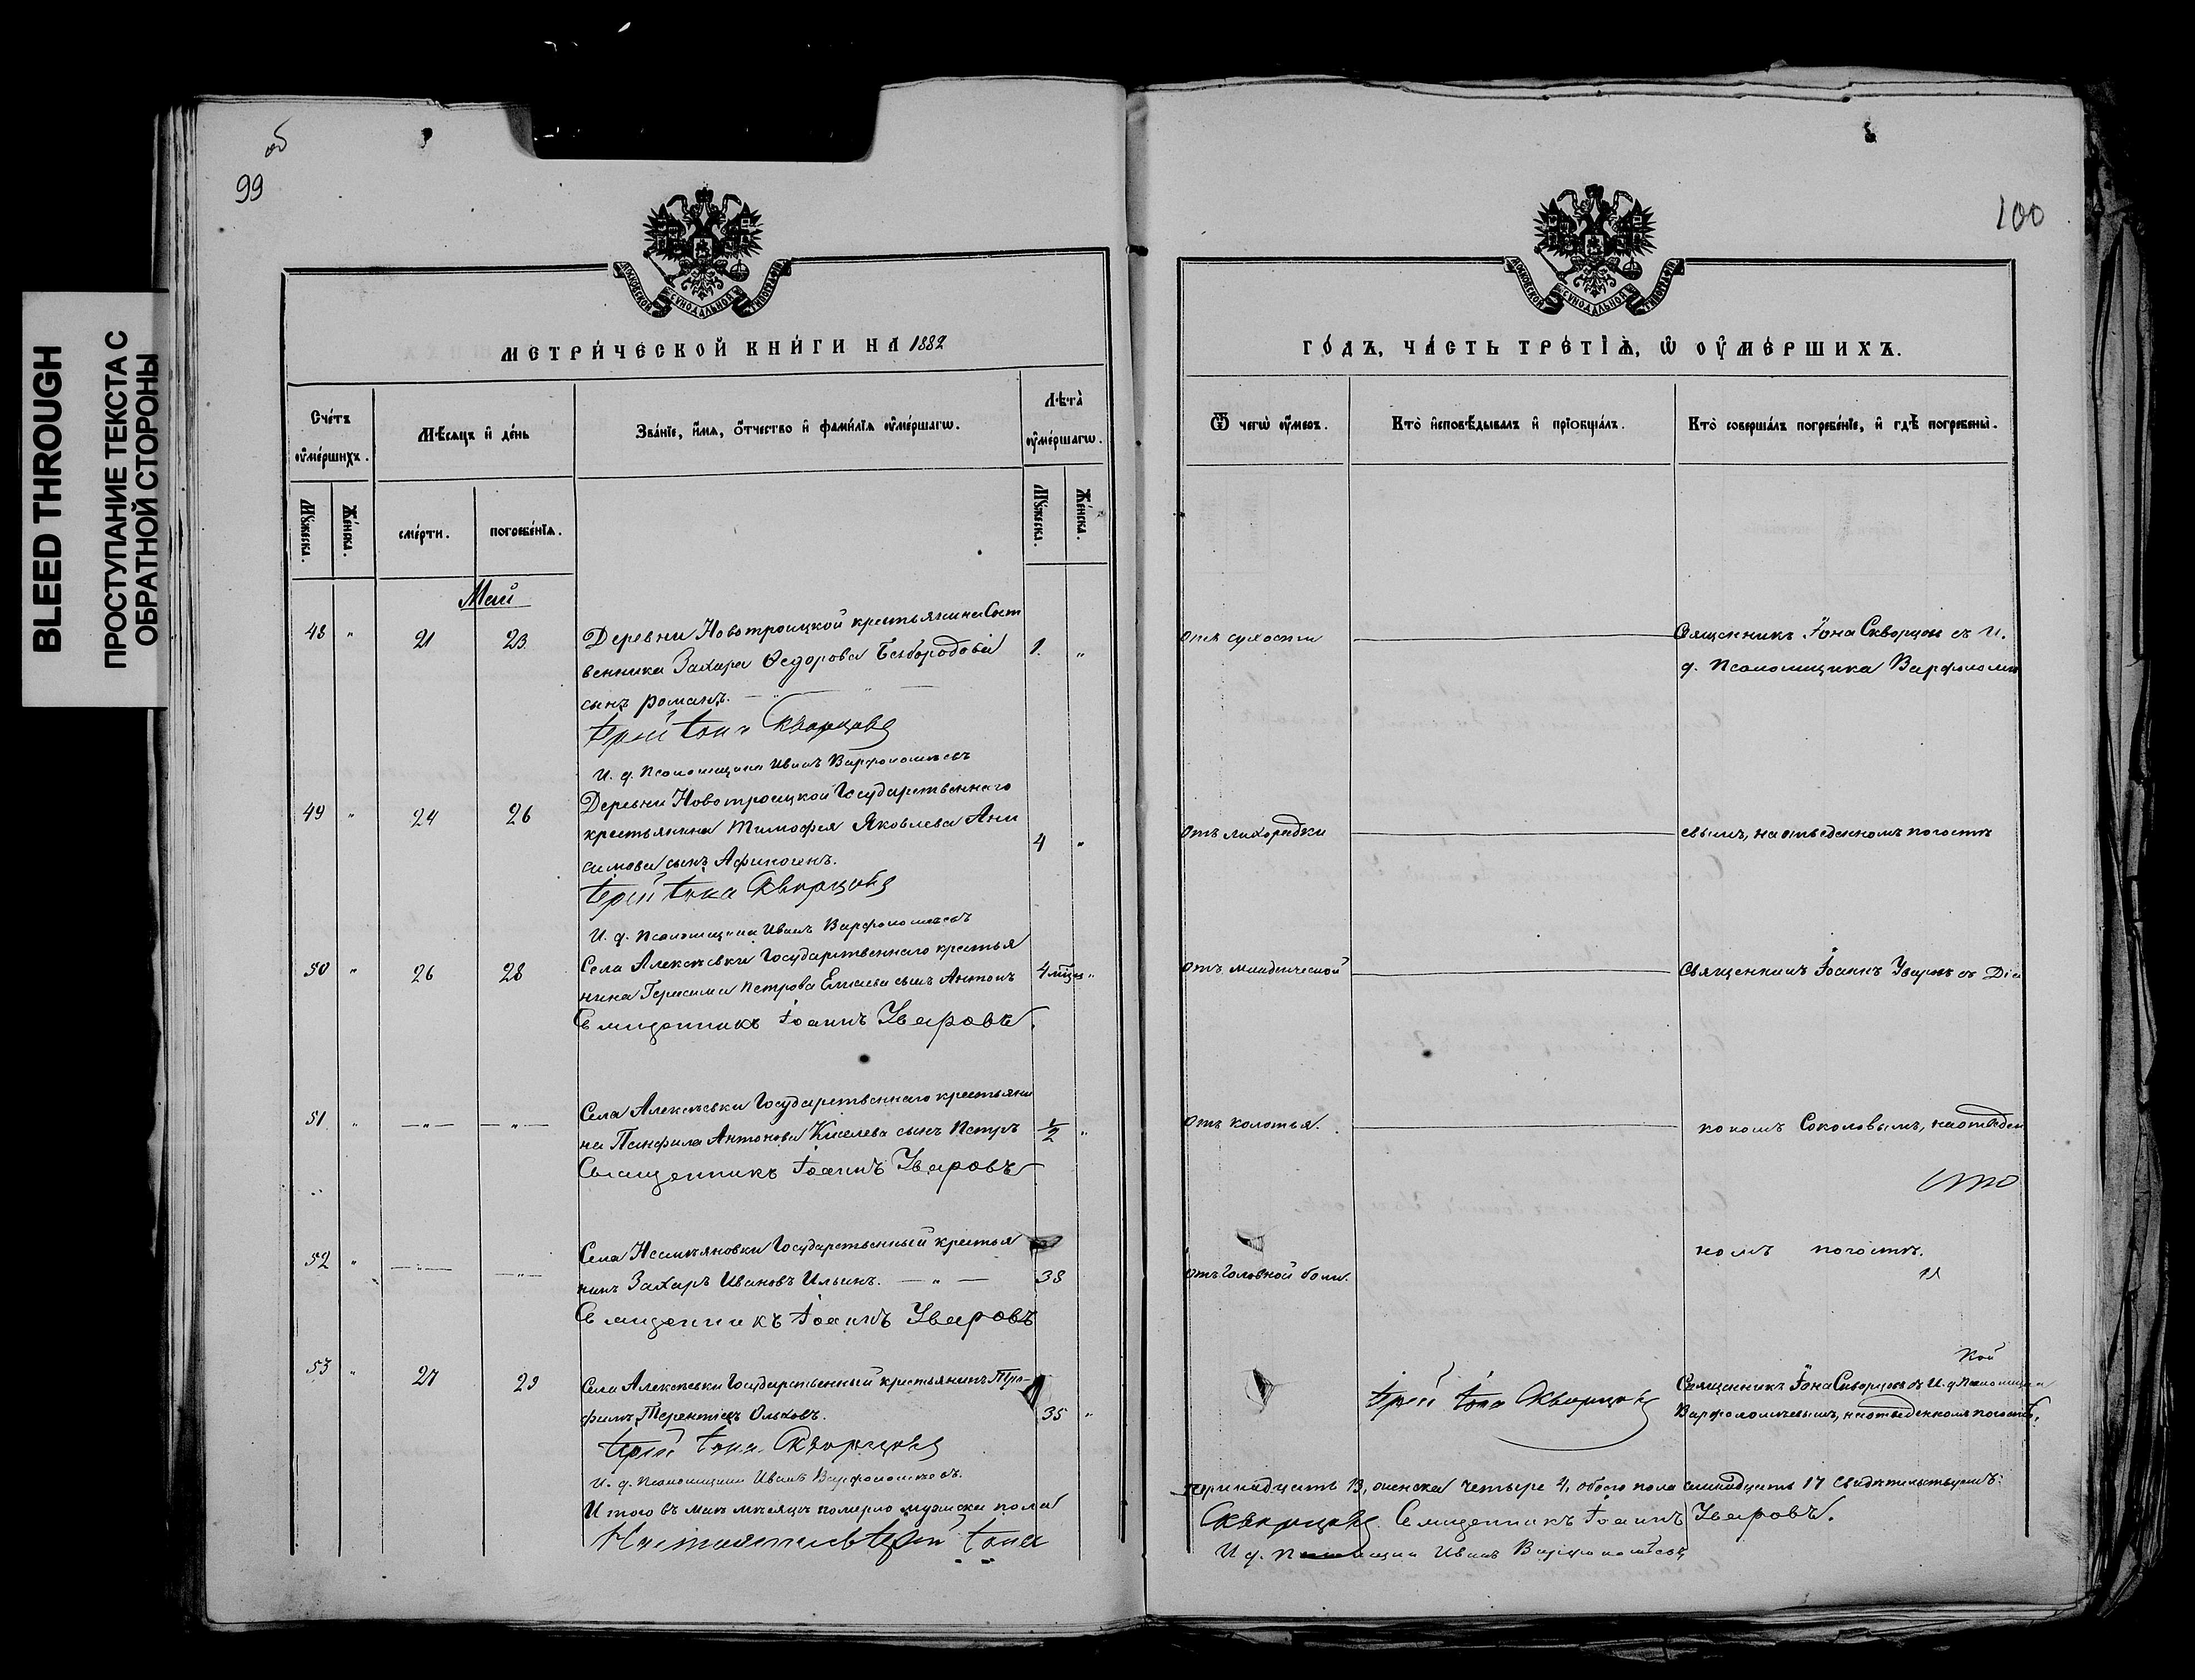 BLEED THROUGH
ПРОСТУПАНИЕ ТЕКСТА С
ОБРАТНОЙ СТОРОНЫ
об
99
МОСКОВСКОЙ СѴНОДАЛЬНОЙ ТИПОГРАФІИ
МЕТРИ́ЧЕСКОЙ КНИ́ГИ НА 1882
Сче́тъ ᲂу҆ме́ршихъ.
Мѣ́сяцъ и҆ де́нь
Зва́нїе, и҆́мѧ, ѻ҆́тчество и҆ фами́лїѧ ᲂу҆ме́ршагѡ.
Лѣта̀ ᲂу҆ме́ршагѡ.
Мꙋжеска.
Же́нска.
сме́рти.
погребе́нїѧ.
Мꙋжеска.
Же́нска.
Май
48 " 21 23 Деревни Новотроицкой крестьянина Собст
венника Захара Ѳедорова Безбородова 1. "
сынъ Романъ.
Іерей Іона Скворцовъ
И. д. Псаломщика Иванъ Варфоломѣевъ
49 " 24 26 Деревни Новотроицкой Государственнаго
крестьянина Тимофея Яковлева Ани
симова сынъ Афиногенъ. 4 "
Іерей Іона Скворцовъ
И. д. Псаломщика Иванъ Варфоломѣевъ
50 " 26 28 Села Алексѣевки Государственнаго крестья
нина Герасима Петрова сынъ Антонъ 4 "
Священникъ Іоаннъ Уваровъ.
51 " — " — — " — Села Алексѣевки Государственнаго крестьяни
на Панфила Антонова Киселева сынъ Петръ 1/2 "
Священникъ Іоаннъ Уваровъ
52 " — " — — " — Села Государственный крестья
нинъ Захаръ Ивановъ Ильинъ. — " — 38
Священникъ Іоаннъ Уваровъ
53 " 27 29 Села Алексѣевки Государственный крестьянинъ Тро-
фимъ Терентіевъ Ольховъ. 35 "
Іерей Іона Скворцовъ
И. д. Псаломщика Иванъ Варфоломѣевъ.
Итого въ маѣ мѣсяцѣ померло мужска пола
Настоятель Іерей Іона
100
МОСКОВСКОЙ СѴНОДАЛЬНОЙ ТИПОГРАФІИ
ГО́ДЪ, ЧА́СТЬ ТРЕ́ТЇѦ, Ѡ҆ ОУ҆МЕ́РШИХЪ.
Ѿ чегѡ̀ ᲂу҆́меръ.
Кто̀ и҆сповѣ́дывалъ и҆ прїѡбща́лъ.
Кто̀ соверша́лъ погребе́нїе, и҆ гдѣ̀ погребены̀.
отъ сухости
Священникъ Іона Скворцовъ съ И.
д. Псаломщика Варфоломѣ
отъ лихорадки
евымъ, на отведенномъ погостѣ
отъ младенческой
Священникъ Іоаннъ Уваровъ съ Діа
отъ колотья.
кономъ Соколовымъ, на отведен
номъ погостѣ.
отъ головной боли.
Іерей Іона Скворцовъ
Священникъ Іона Скворцовъ съ И. д. Псаломщика
Варфоломѣевымъ, на отведенномъ погостѣ.
тринадцать 13, женска четыре 4, обоего пола семнадцать 17 Свидѣтельствуемъ:
Скворцовъ. Священникъ Іоаннъ Уваровъ.
И. д. Псаломщика Иванъ Варфоломѣевъ